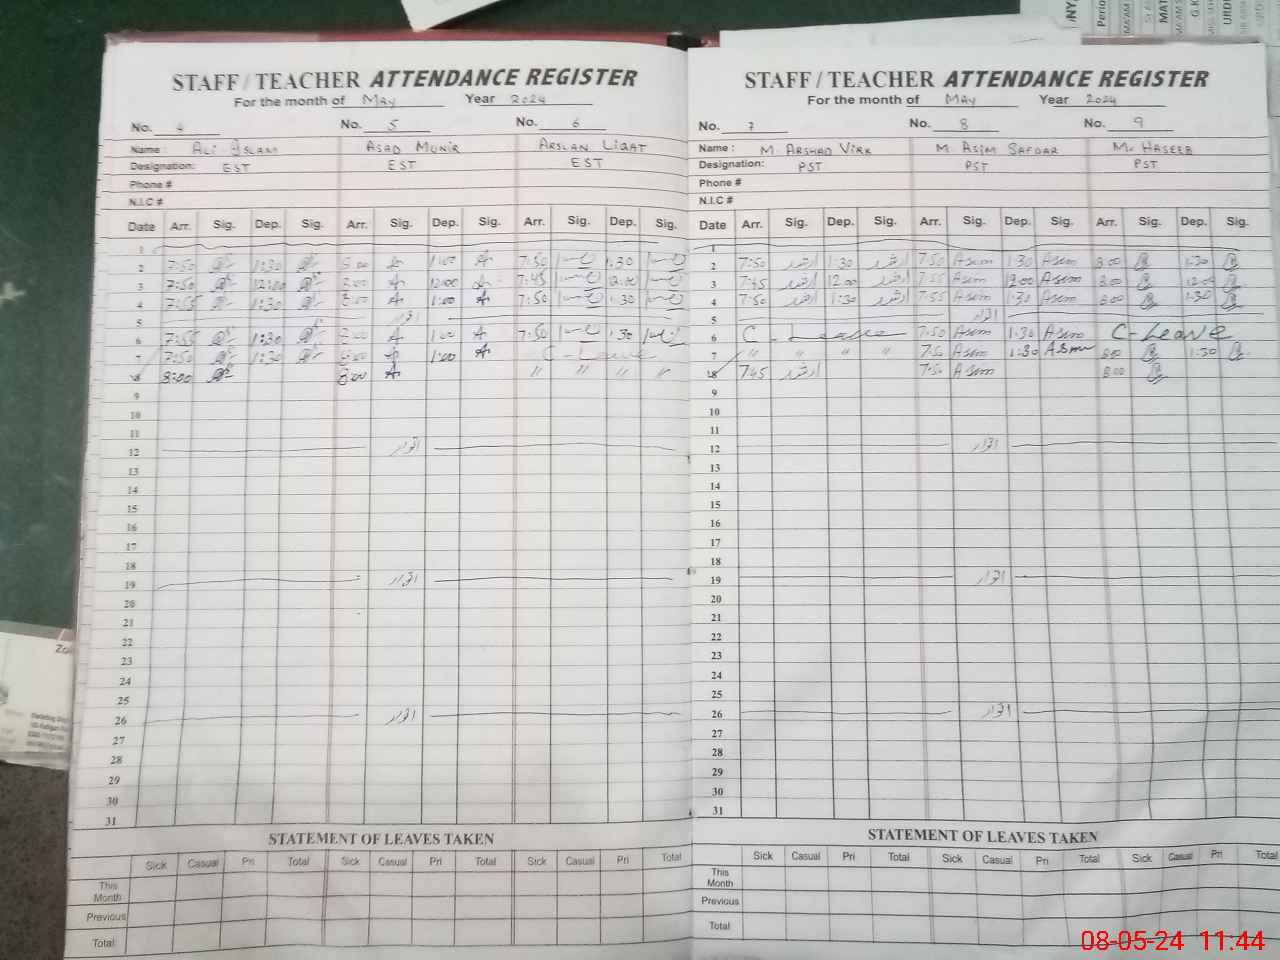 STAFF / TEACHER ATTENDANCE REGISTER
For the month of May Year 2024
No. 4 No. 5 No. 6
Name : ALI ISLAM ASAD MUNIR ARSLAN LIQAT
Designation: EST EST EST
Phone #
N.I.C #
Date Arr. Sig. Dep. Sig. Arr. Sig. Dep. Sig. Arr. Sig. Dep. Sig.
1
2 7:50 1:30 8:00 1:00 7:50 1:30
3 7:50 12:00 8:00 12:00 7:45 12:00
4 7:55 1:30 8:00 1:00 7:50 1:30
5 اتوار
6 7:55 1:30 8:00 1:00 7:50 1:30
7 7:50 1:30 8:00 1:00 C - Leave
8 8:00 8:00 " " " "
9
10
11
12 اتوار
13
14
15
16
17
18
19 اتوار
20
21
22
23
24
25
26 اتوار
27
28
29
30
31
STATEMENT OF LEAVES TAKEN
Sick Casual Pri Total Sick Casual Pri Total Sick Casual Pri Total
This Month
Previous
Total
STAFF / TEACHER ATTENDANCE REGISTER
For the month of MAY Year 2024
No. 7 No. 8 No. 9
Name : M. ARSHAD VIRK M. ASIM SAFDAR M. HASEEB
Designation: PST PST PST
Phone #
N.I.C #
Date Arr. Sig. Dep. Sig. Arr. Sig. Dep. Sig. Arr. Sig. Dep. Sig.
1
2 7:50 ارشد 1:30 ارشد 7:50 Asim 1:30 Asim 8:00 1:30
3 7:45 ارشد 12:00 ارشد 7:55 Asim 12:00 Asim 8:00 12:00
4 7:50 ارشد 1:30 ارشد 7:55 Asim 1:30 Asim 8:00 1:30
5 اتوار
6 C - Leave 7:50 Asim 1:30 Asim C-Leave
7 " " " " 7:50 Asim 1:30 Asim 8:00 1:30
8 7:45 ارشد 7:50 Asim 8:00
9
10
11
12 اتوار
13
14
15
16
17
18
19 اتوار
20
21
22
23
24
25
26 اتوار
27
28
29
30
31
STATEMENT OF LEAVES TAKEN
Sick Casual Pri Total Sick Casual Pri Total Sick Casual Pri Total
This Month
Previous
Total
08-05-24 11:44